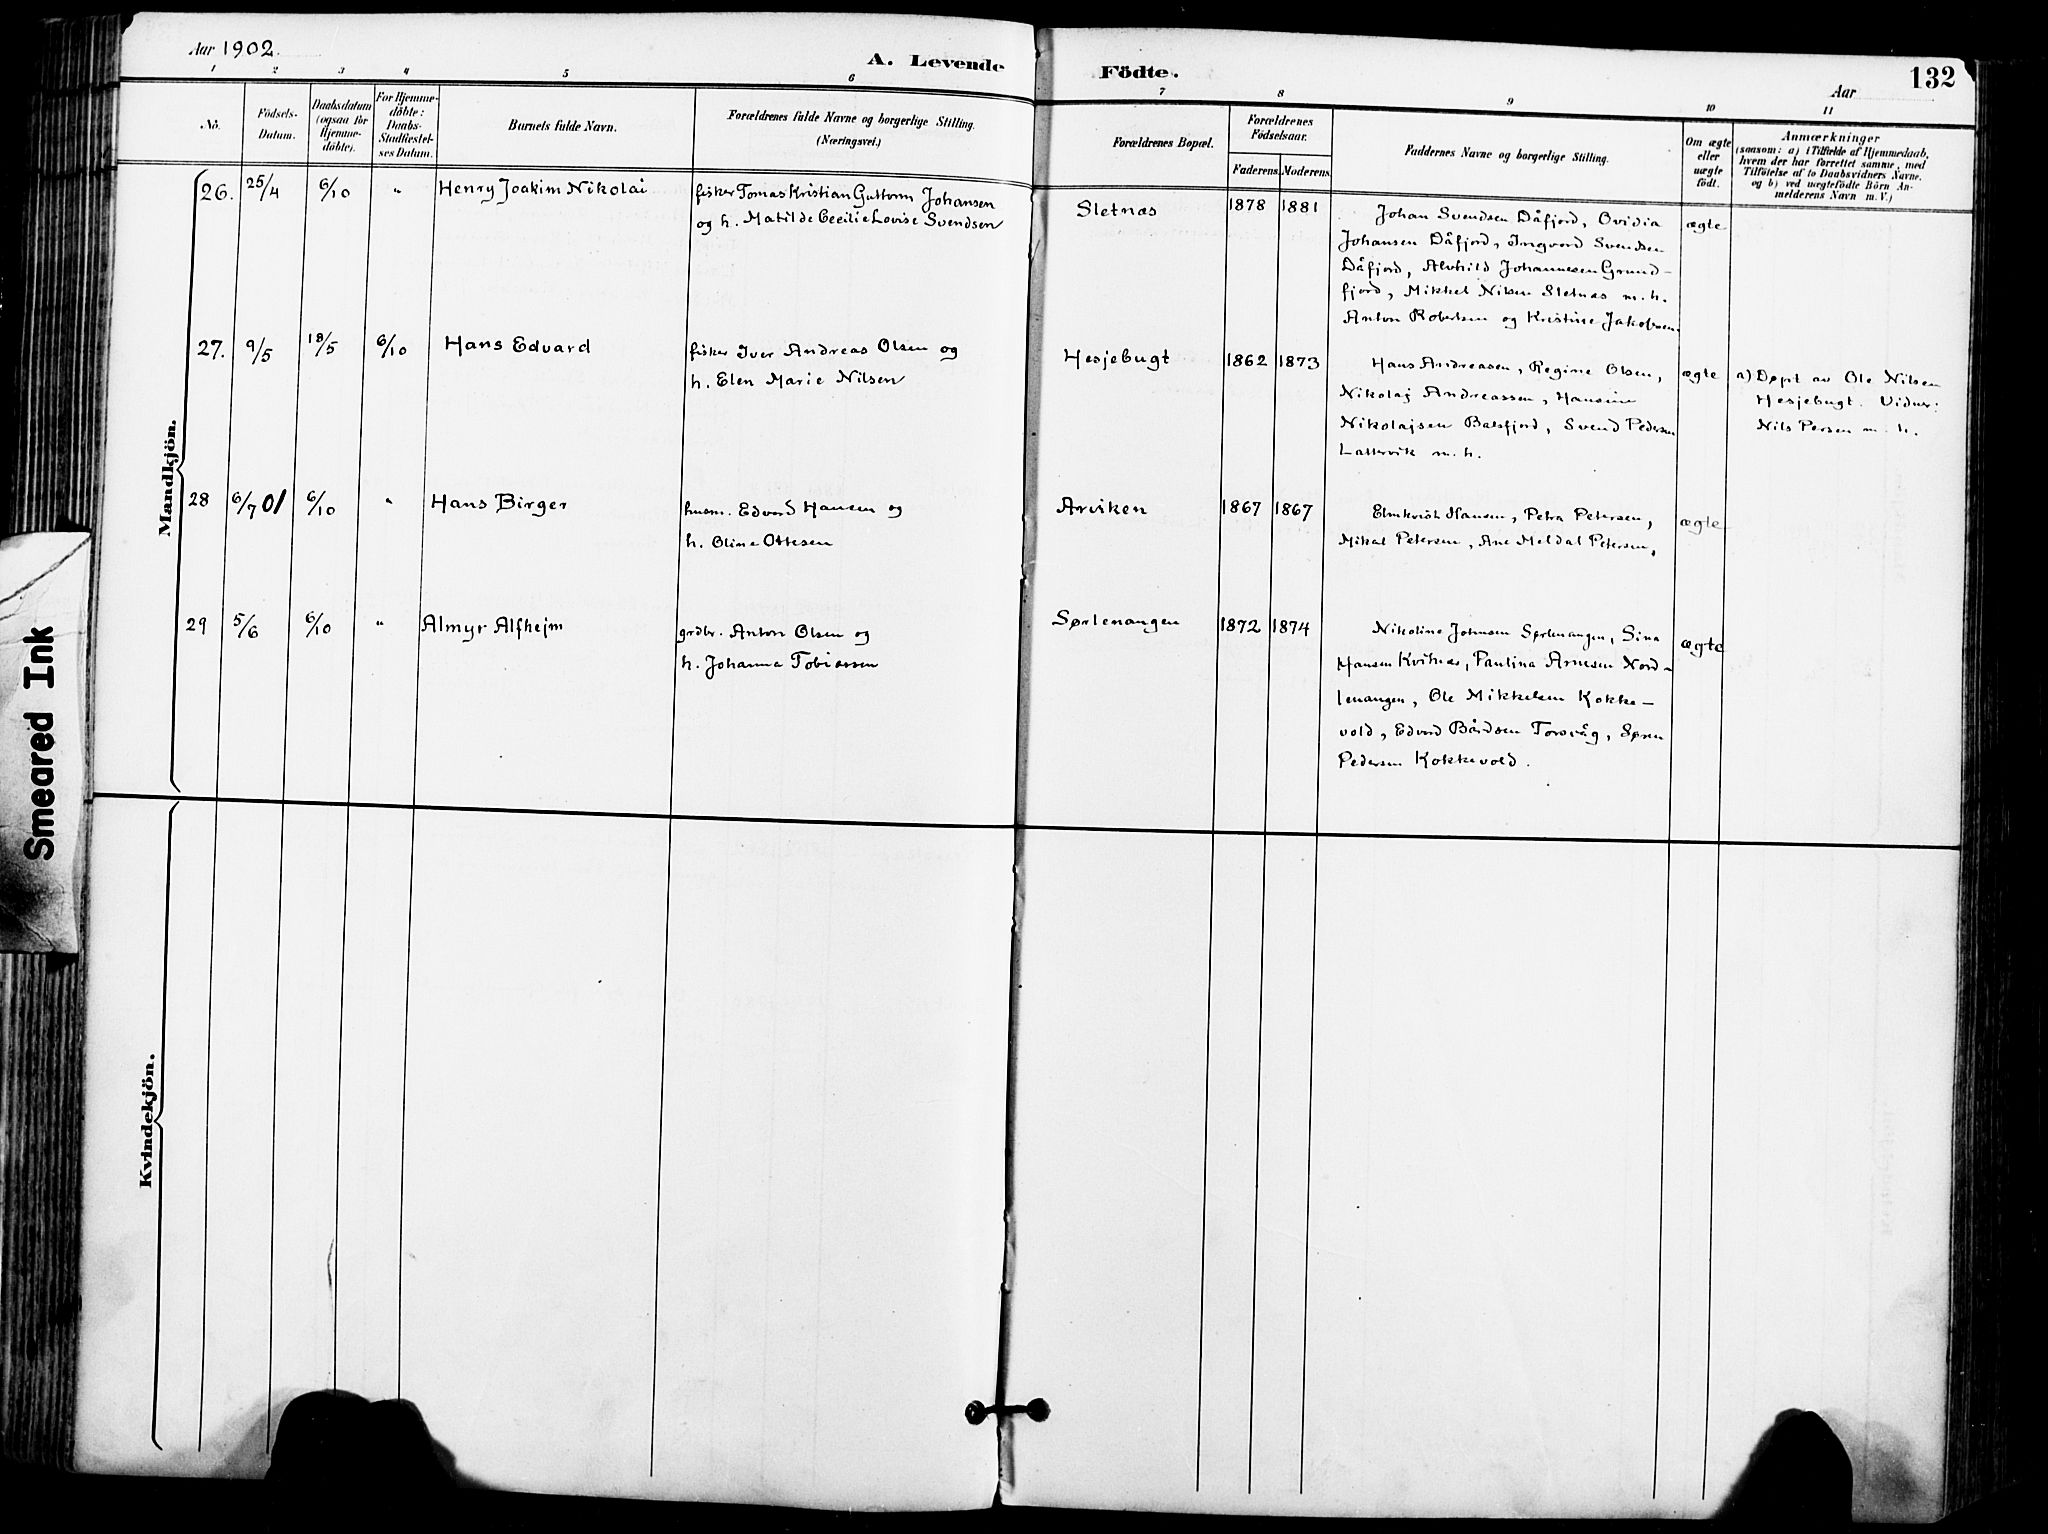 Aar 1902.
A. Levende Födte.
Aar
132
1 2 3 4 5 6 7 8 9 10 11
No.
Födsels-
Datum.
Daabsdatum
(ogsaa for
Hjemme-
döbte).
For Hjemme-
döbte:
Daabs-
Stadfæstel-
ses Datum.
Barnets fulde Navn.
Forældrenes fulde Navne og borgerlige Stilling.
(Næringsvei.)
Forældrenes Bopæl.
Forældrenes
Födselsaar.
Faderens. Moderens.
Faddernes Navne og borgerlige Stilling.
Om ægte
eller
uægte
födt.
Anmærkninger
(saasom: a) i Tilfælde af Hjemmedaab,
hvem der har forrettet samme, med
Tilföielse af to Daabsvidners Navne.
og b) ved uægtefödte Börn An-
melderens Navn m. V.)
Mandkjön.
26. 25/4 6/10 " Henry Joakim Nikolai
fisker Tomas Kristian Guttorm Johansen
og h. Matilde Cecilie Lovise Svendsen
Sletnæs 1878 1881
Johan Svendsen Dåfjord, Ovidia
Johansen Dåfjord, Ingvard Svendsen
Dåfjord, Alvhild Johannesen Grund-
fjord, Mikkel Nilsen Sletnæs m. h.
Anton Robertsen og Kristine Jakobsen.
ægte
27. 9/5 18/5 6/10 Hans Edvard
fisker Iver Andreas Olsen og
h. Elen Marie Nilsen
Hesjebugt 1862 1873
Hans Andreasen, Regine Olsen,
Nikolaj Andreassen, Hansine
Nikolajsen Balsfjord, Svend Pedersen
Lattervik m. h.
ægte
a) Døpt av Ole Nilsen
Hesjebugt. Vidner:
Nils Persen m. h.
28 6/7 01 6/10 " Hans Birger
husm. Edvard Hansen og
h. Oline Ottesen
Arviken 1867 1867
Hansen, Petra Petersen,
Mikal Petersen, Ane Meldal Petersen,
ægte
29 5/6 6/10 " Almyr Alfhejm
grdbr. Anton Olsen og
h. Johanna Tobiassen
Sørlenangen 1872 1874
Nikoline Johnsen Sørlenangen, Sina
Hansen Kviknæs, Paulina Arnesen Nord-
lenangen, Ole Mikkelsen Kokke-
vold, Edvard Bårdsen Torsvåg, Søren
Pedersen Kokkevold.
ægte
Kvindekjön.
Smeared Ink